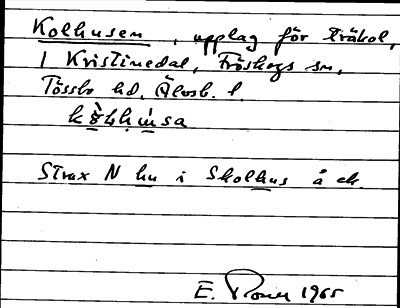 Kolhusen, upplag för träkol,
i Kristinedal, Fröskogs sn,
Tössbo hd, Älvsb. l.
Strax N hu i Skolhus å ek.
E. 1965